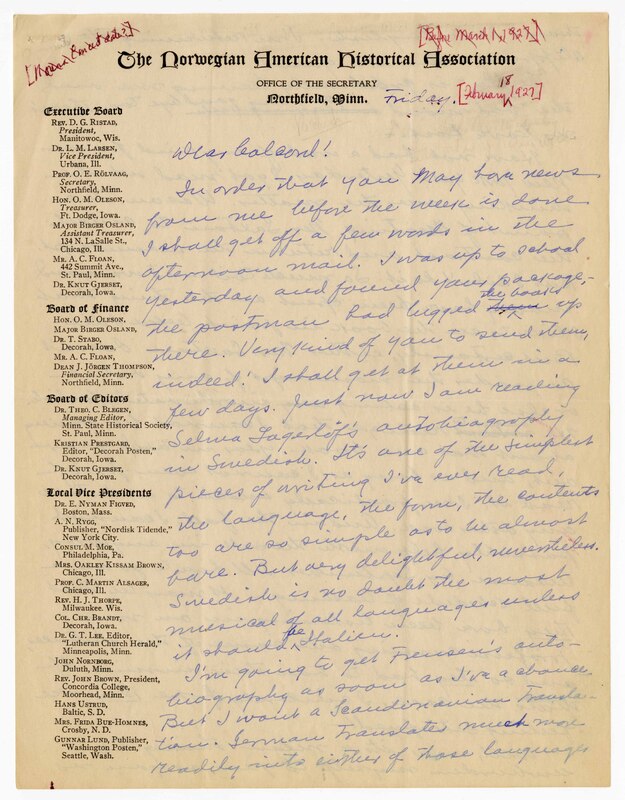 [Before March 1, 1927]
The Norwegian American Historical Association
OFFICE OF THE SECRETARY
Northfield, Minn.
Friday. [February 18, 1927]
Executive Board
REV. D. G. RISTAD,
President,
Manitowoc, Wis.
DR. L. M. LARSEN,
Vice President,
Urbana, Ill.
PROF. O. E. RÖLVAAG,
Secretary,
Northfield, Minn.
HON. O. M. OLESON,
Treasurer,
Ft. Dodge, Iowa.
MAJOR BIRGER OSLAND,
Assistant Treasurer,
134 N. LaSalle St.,
Chicago, Ill.
MR. A. C. FLOAN,
442 Summit Ave.,
St. Paul, Minn.
DR. KNUT GJERSET,
Decorah, Iowa.
Board of Finance
HON. O. M. OLESON,
MAJOR BIRGER OSLAND,
DR. T. STABO,
Decorah, Iowa.
MR. A. C. FLOAN,
DEAN J. JÖRGEN THOMPSON,
Financial Secretary,
Northfield, Minn.
Board of Editors
DR. THEO. C. BLEGEN,
Managing Editor,
Minn. State Historical Society,
St. Paul, Minn.
KRISTIAN PRESTGARD,
Editor, "Decorah Posten,"
Decorah, Iowa.
DR. KNUT GJERSET,
Decorah, Iowa.
Local Vice Presidents
DR. E. NYMAN FIGVED,
Boston, Mass.
A. N. RYGG,
Publisher, "Nordisk Tidende,"
New York City.
CONSUL M. MOE,
Philadelphia, Pa.
MRS. OAKLEY KISSAM BROWN,
Chicago, Ill.
PROF. C. MARTIN ALSAGER,
Chicago, Ill.
REV. H. J. THORPE,
Milwaukee. Wis.
COL. CHR. BRANDT,
Decorah, Iowa.
DR. G. T. LEE, Editor,
"Lutheran Church Herald,"
Minneapolis, Minn.
JOHN NORNBORG,
Duluth, Minn.
REV. JOHN BROWN, President,
Concordia College,
Moorhead, Minn.
HANS USTRUD,
Baltic, S. D.
MRS. FRIDA BUE-HOMNES,
Crosby, N. D.
GUNNAR LUND, Publisher,
"Washington Posten,"
Seattle, Wash.
Dear Colcord!
In order that you may have news
from me before the week is done
I shall get off a few words in the
afternoon mail. I was up to school
yesterday and found your package,-
the postman had lugged the books up
there. Very kind of you to send them,
indeed! I shall get at them in a
few days. Just now I am reading
Selma Lagerlöf's autobiography
in Swedish. It's one of the simplest
pieces of writing I've ever read,
the language, the form, the contents
too are so simple as to be almost
bare. But very delightful, nevertheless.
Swedish is no doubt the most
musical of all languages unless
it should be Italian.
I'm going to get Frensen's auto-
biography as soon as I've a chance.
But I want a Scandinavian transla-
tion. German translates much more
readily into either of those languages